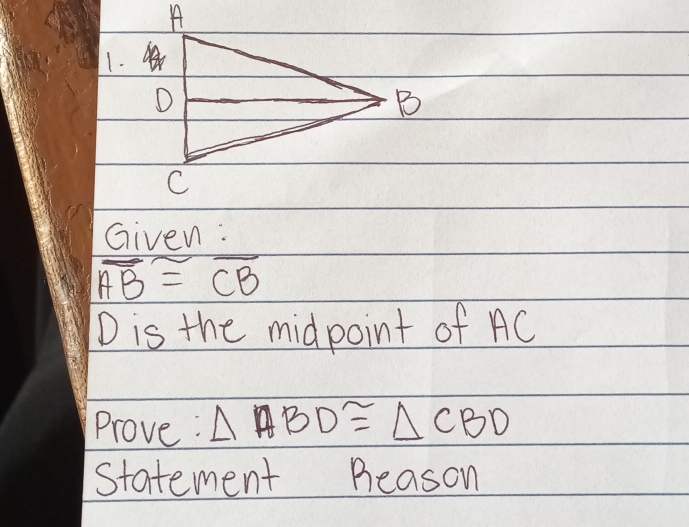 A
1.
D B
C
Given:
AB ≅ CB
D is the midpoint of AC
Prove: △ ABD ≅ △ CBD
Statement Reason